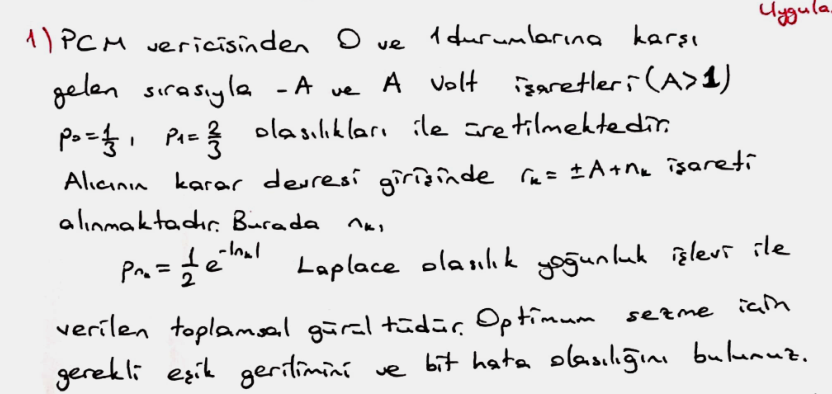 Uygula
1) PCM vericisinden 0 ve 1 durumlarına karşı
gelen sırasıyla -A ve A Volt işaretleri (A>1)
p₀=1/3, p₁=2/3 olasılıkları ile üretilmektedir.
Alıcının karar devresi girişinde rₖ = ±A+nₖ işareti
alınmaktadır. Burada nₖ,
pₙₖ = 1/2 e^-|nₖ| Laplace olasılık yoğunluk işlevi ile
verilen toplamsal gürültüdür. Optimum sezme için
gerekli eşik gerilimini ve bit hata olasılığını bulunuz.